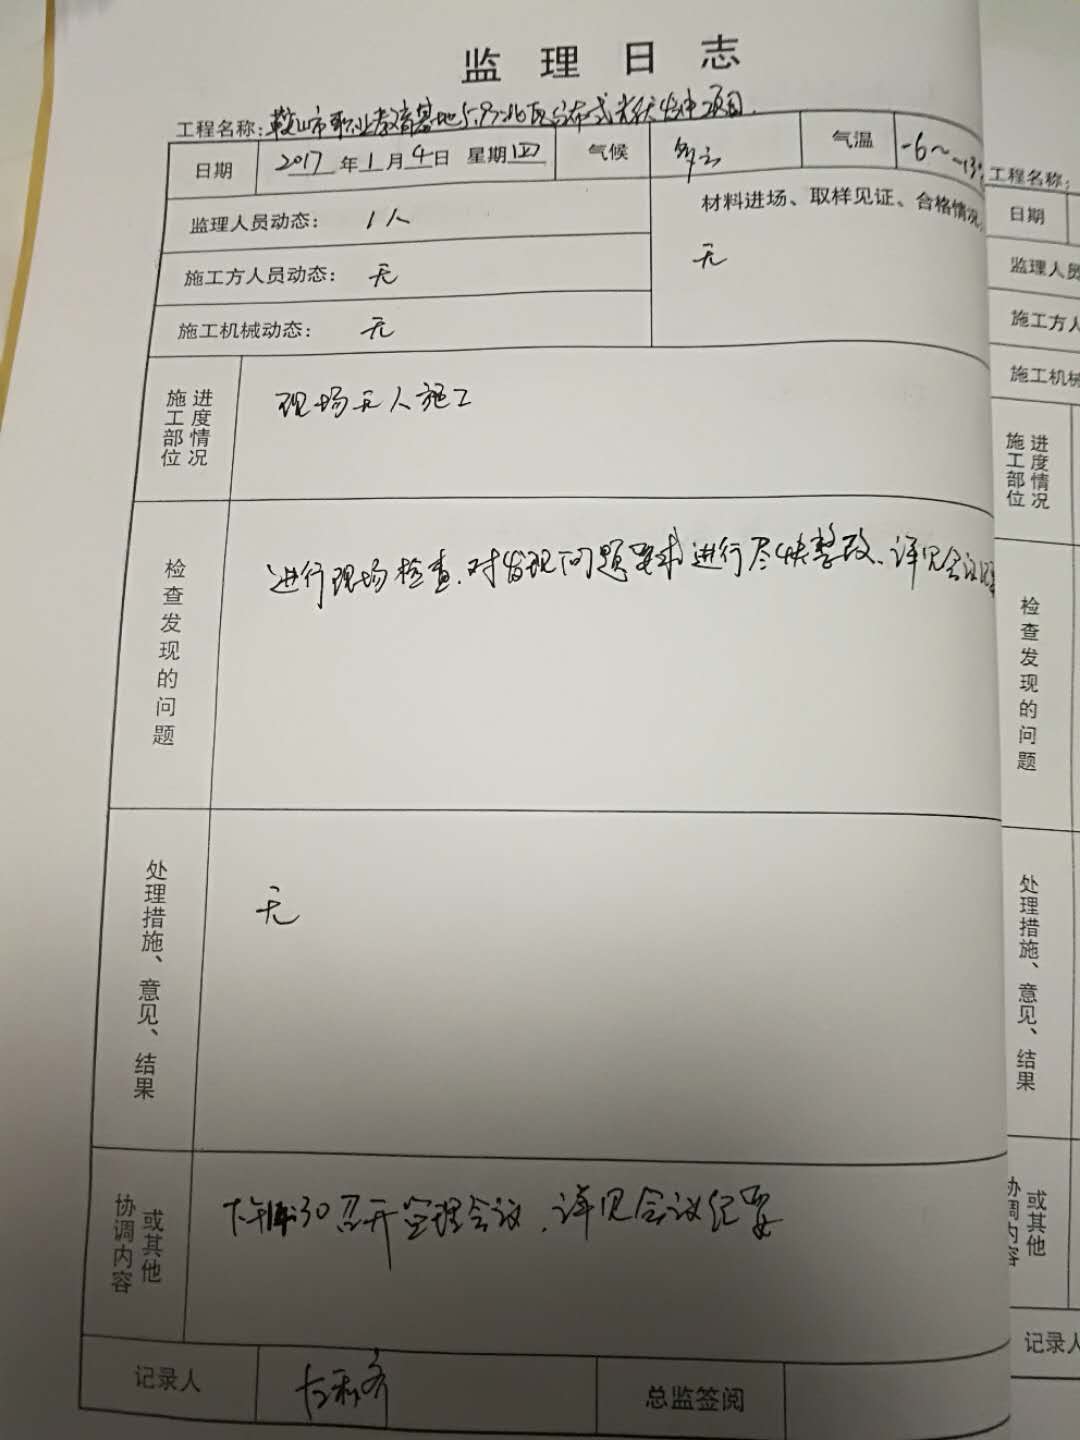 监理日志
工程名称：鞍山市职业教育基地5.9726MW分布式光伏发电项目
日期 2017年1月4日 星期四 气候 多云 气温 -6～-13°
监理人员动态： 1人
材料进场、取样见证、合格情况
施工方人员动态： 无
无
施工机械动态： 无
施工部位 进度情况
现场无人施工
检查发现的问题
进行现场检查，对发现问题要求进行尽快整改，详见会议纪
处理措施、意见、结果
无
协调内容 或其他
下午14:30召开监理会议，详见会议纪要
记录人 总监签阅
工程名称：
日期
监理人员
施工方人
施工机械
施工部位 进度情况
检查发现的问题
处理措施、意见、结果
协调内容 或其他
记录人